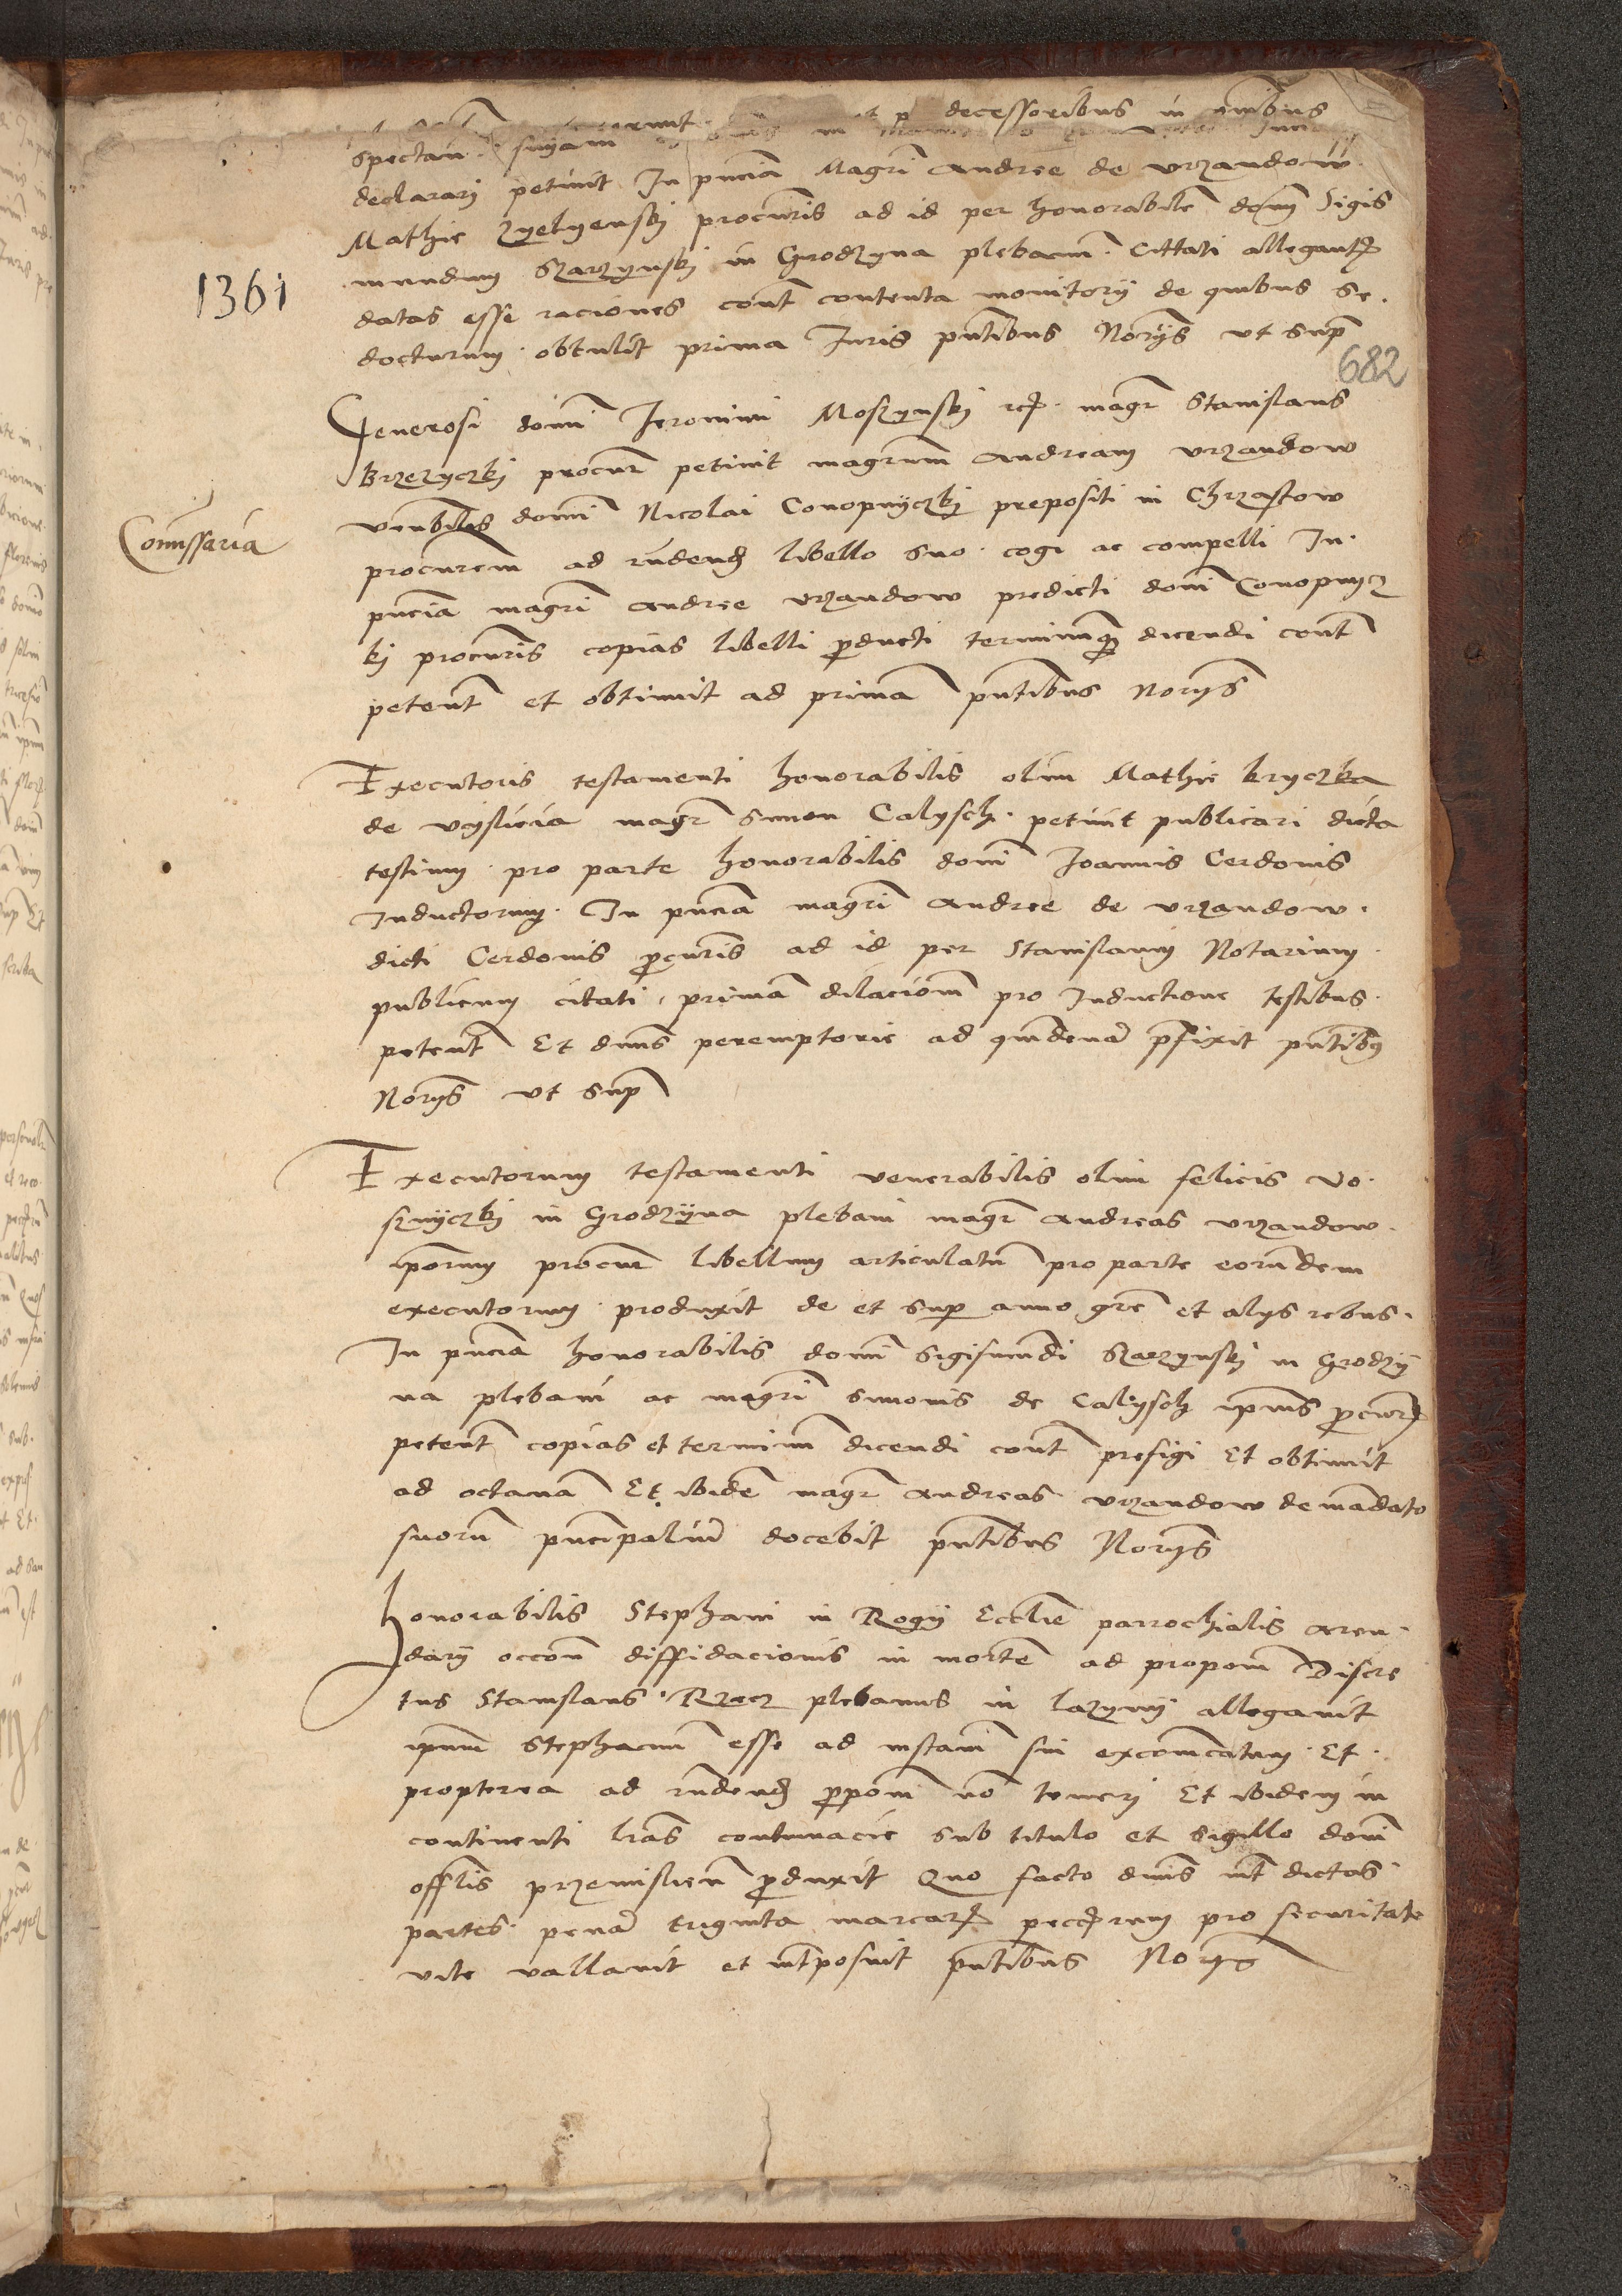 decessoribus in omnibus
spectan. snÿam
declararj petiuit In pnciã Magrĩ Andree de vrzandow
Mathie zyelyenskj procuris ad id per honorabilẽ domĩ Sigis
mundum Szarzynskj in Grodzyna plebanũ. Cittati allegantꝭ
datas esse raciones cont̃ contenta monitorij de quibus se.
docturum. obtulit prima Iuris pntibus Norijs vt sup̃
1361
682
Generosi domĩ Ieronimi Moszynskj magr̃ Stanislaus
Brzezyczkj procur̃ petiuit magrum Andream vrzandow
venbilis domĩ Nicolai Conopnÿczkj prepositi in Chrzastow
Comissaria
procurem ad rñdendꝭ libello suo. cogi ac compelli In.
pnciã magrĩ Andree vrzandow predicti domĩ Conopnycz
kj procuris copias libelli ꝓducti terminũqꝫ dicendi cont̃
petent̃ et obtinuit ad primã pntibus Norijs
Executoris testamenti honorabilis olim Mathie kryczka
de vÿslicia magr̃ Simon Calysch. petiuit publicari dicta
testium. pro parte honorabilis domĩ Ioannis Cerdonis
Inductorum. In pnciã magrĩ Andree de vrzandow.
dicti Cerdonis ꝓcuris ad id per Stanislaum Notarium
publicum citati. primã dilacionẽ pro Inductione testibus.
petent̃ Et dnus peremptorie ad quindenã p̃fixit pntibus
Norijs vt sup̃
Executorum testamenti venerabilis olim felicis Wo.
sznÿczkj in Grodzÿna plebani magr̃ Andreas vrzandow.
ipõrum procur̃ libellum articulatũ pro parte eorundem
executorum. produxit de et sup anno grẽ et alijs rebus.
In pnciã honorabilis domĩ Sigismundi Szarzynskj in Grodzy
na plebani ac magrĩ Simonis de Calysch ipius ꝓcuris
petent̃ copias et terminũ dicendi cont̃ prefigi Et obtinuit
ad octauã Et ibidẽ magr̃ Andreas vrzandow de mandato
suorũ pncipaliũ docebit pntibus Norijs
honorabilis Stephani in Rogy Ecclie parrochialis aren.
darij occon̄ diffidacionis in mortẽ ad propon̄ Discre
tus Stanislaus Rzecz plebanus in lazyny allegauit
ipum Stephanũ esse ad instan̄ sui excomcatum. Et.
propterea ad rñdendꝭ ꝓpom̃ nõ teneri Et ibidem in
continenti lr̃as contumacie sub titulo et sigillo domĩ
offlis przemislien̄ ꝓduxit Quo facto dnus int̃ dictas
partes. penã triginta marcarꝝ pro securitate
vite vallauit et int̃posuit pntibus Norijs